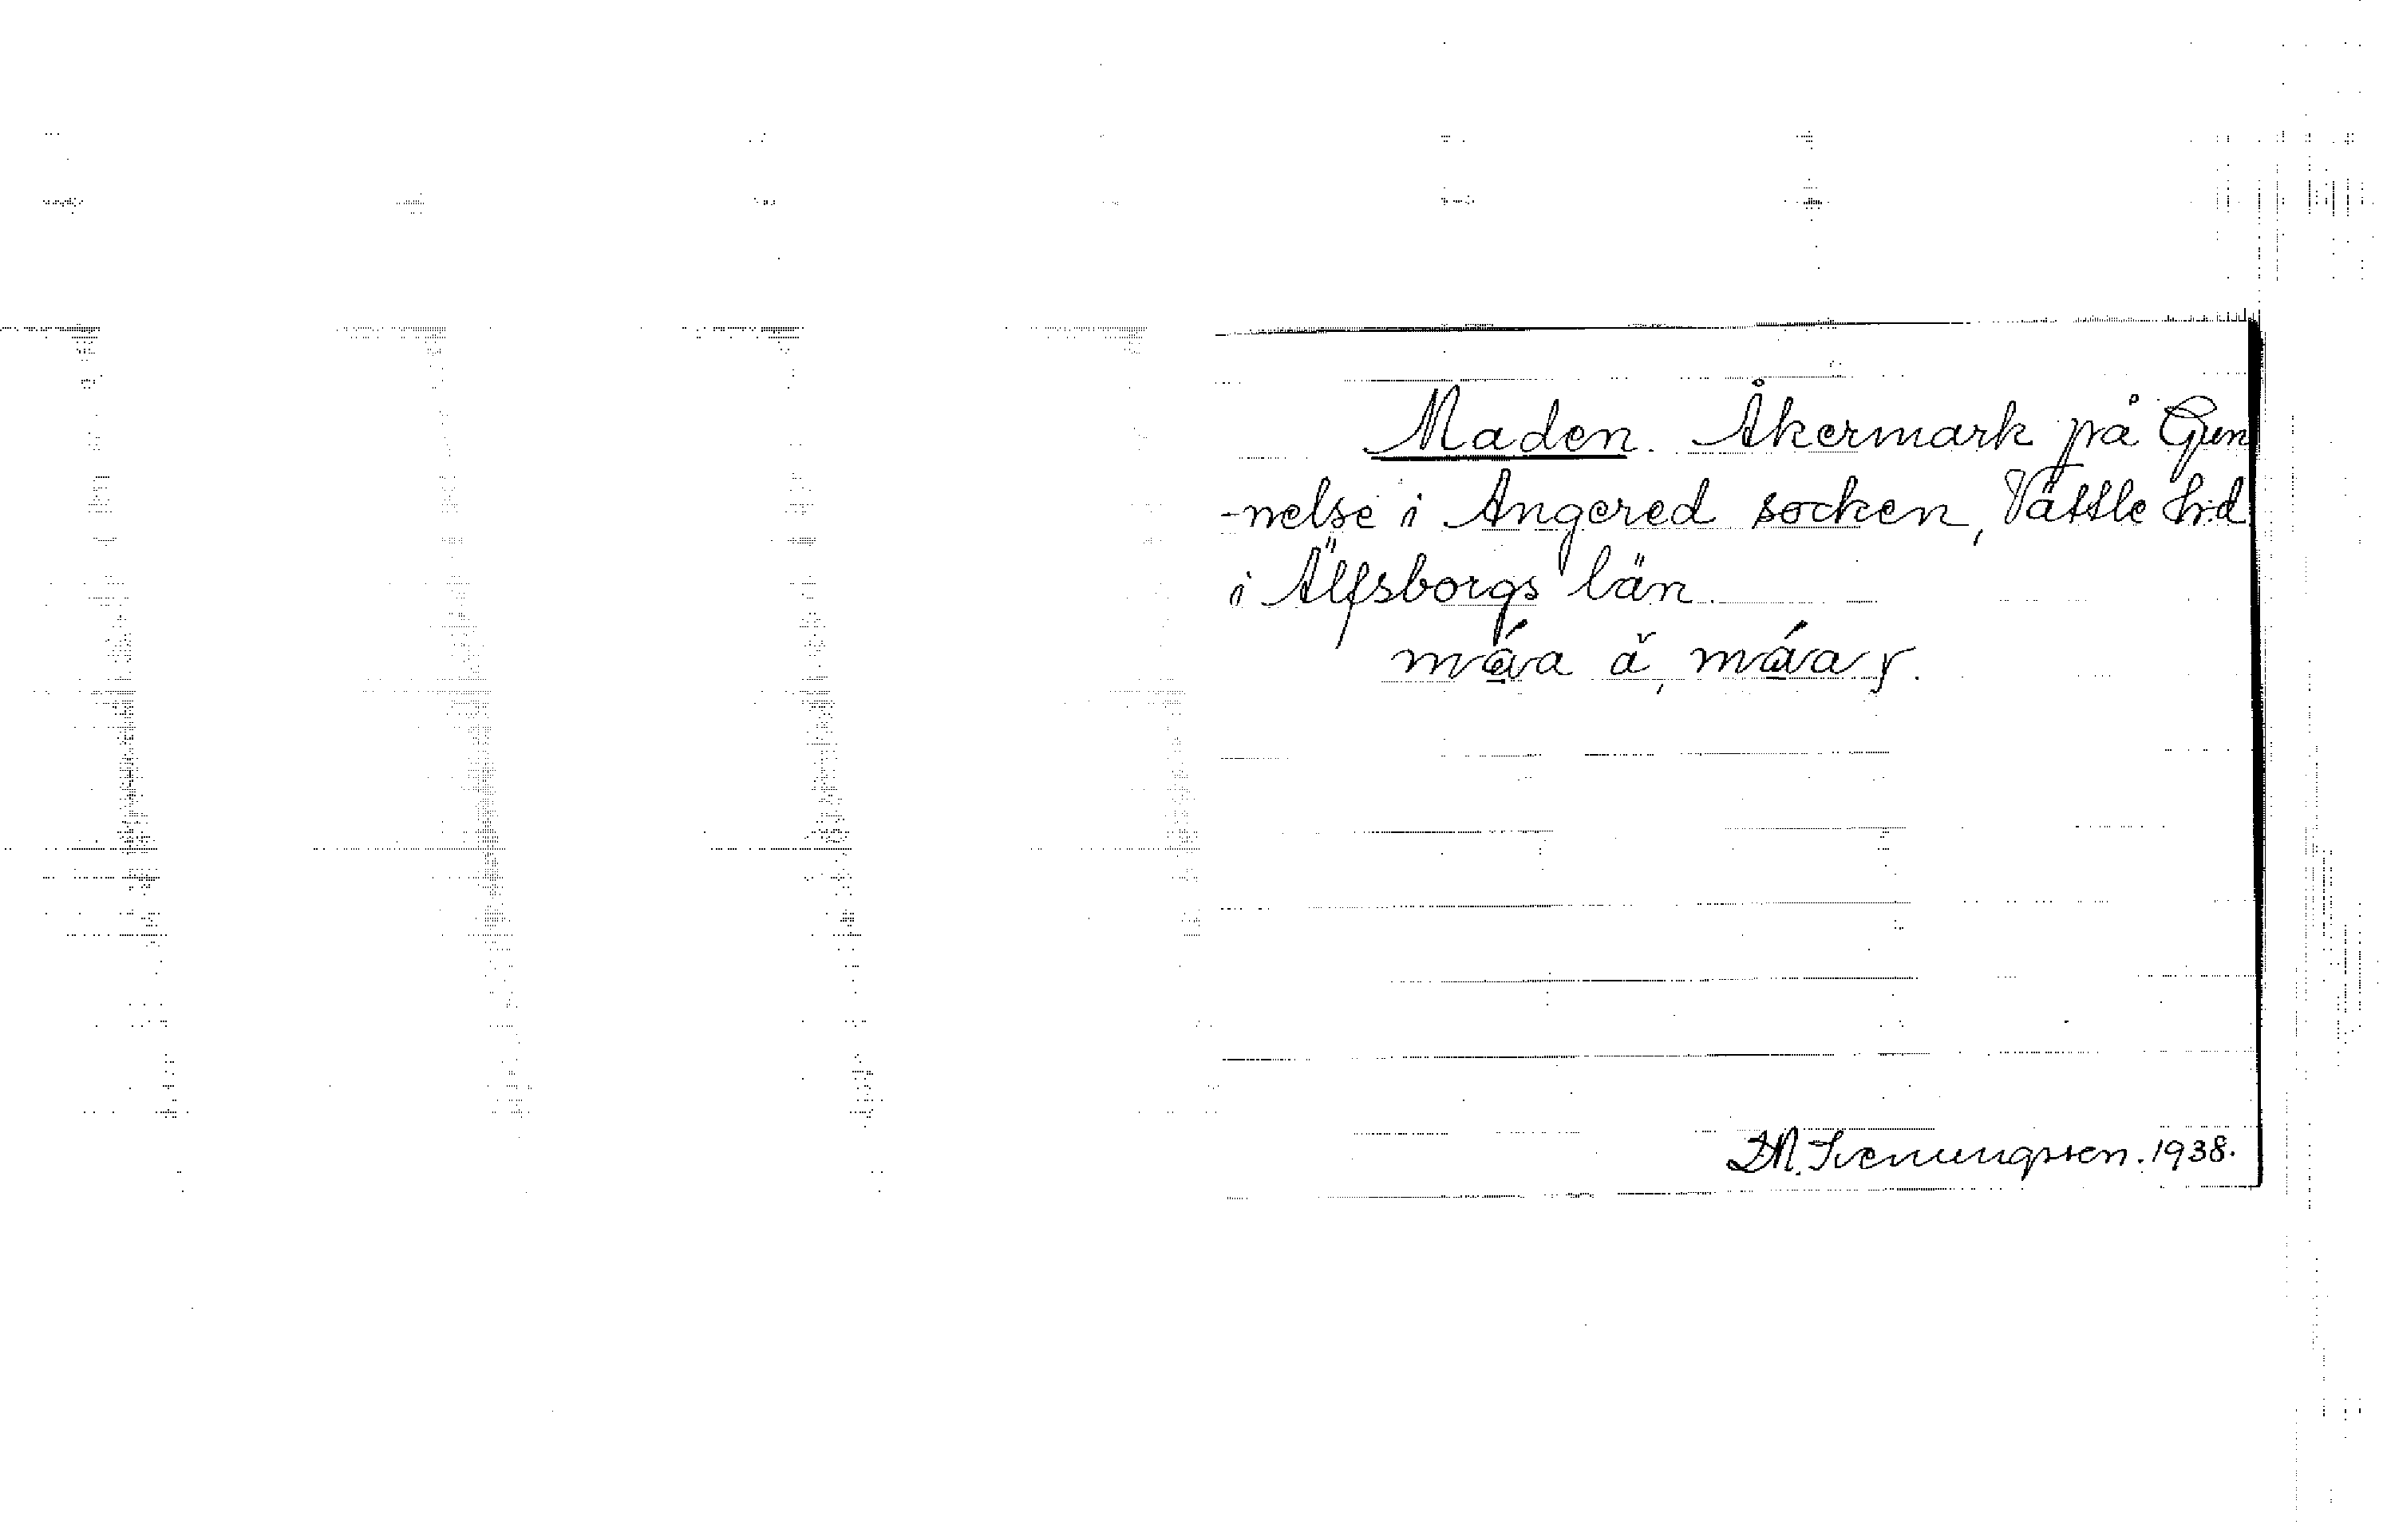 Maden. Åkermark på Gun
-nelse i Angered socken, Vättle hd
i Älfsborgs län.
máva ǎ, máva y.
D.N. Svenungsson. 1938.